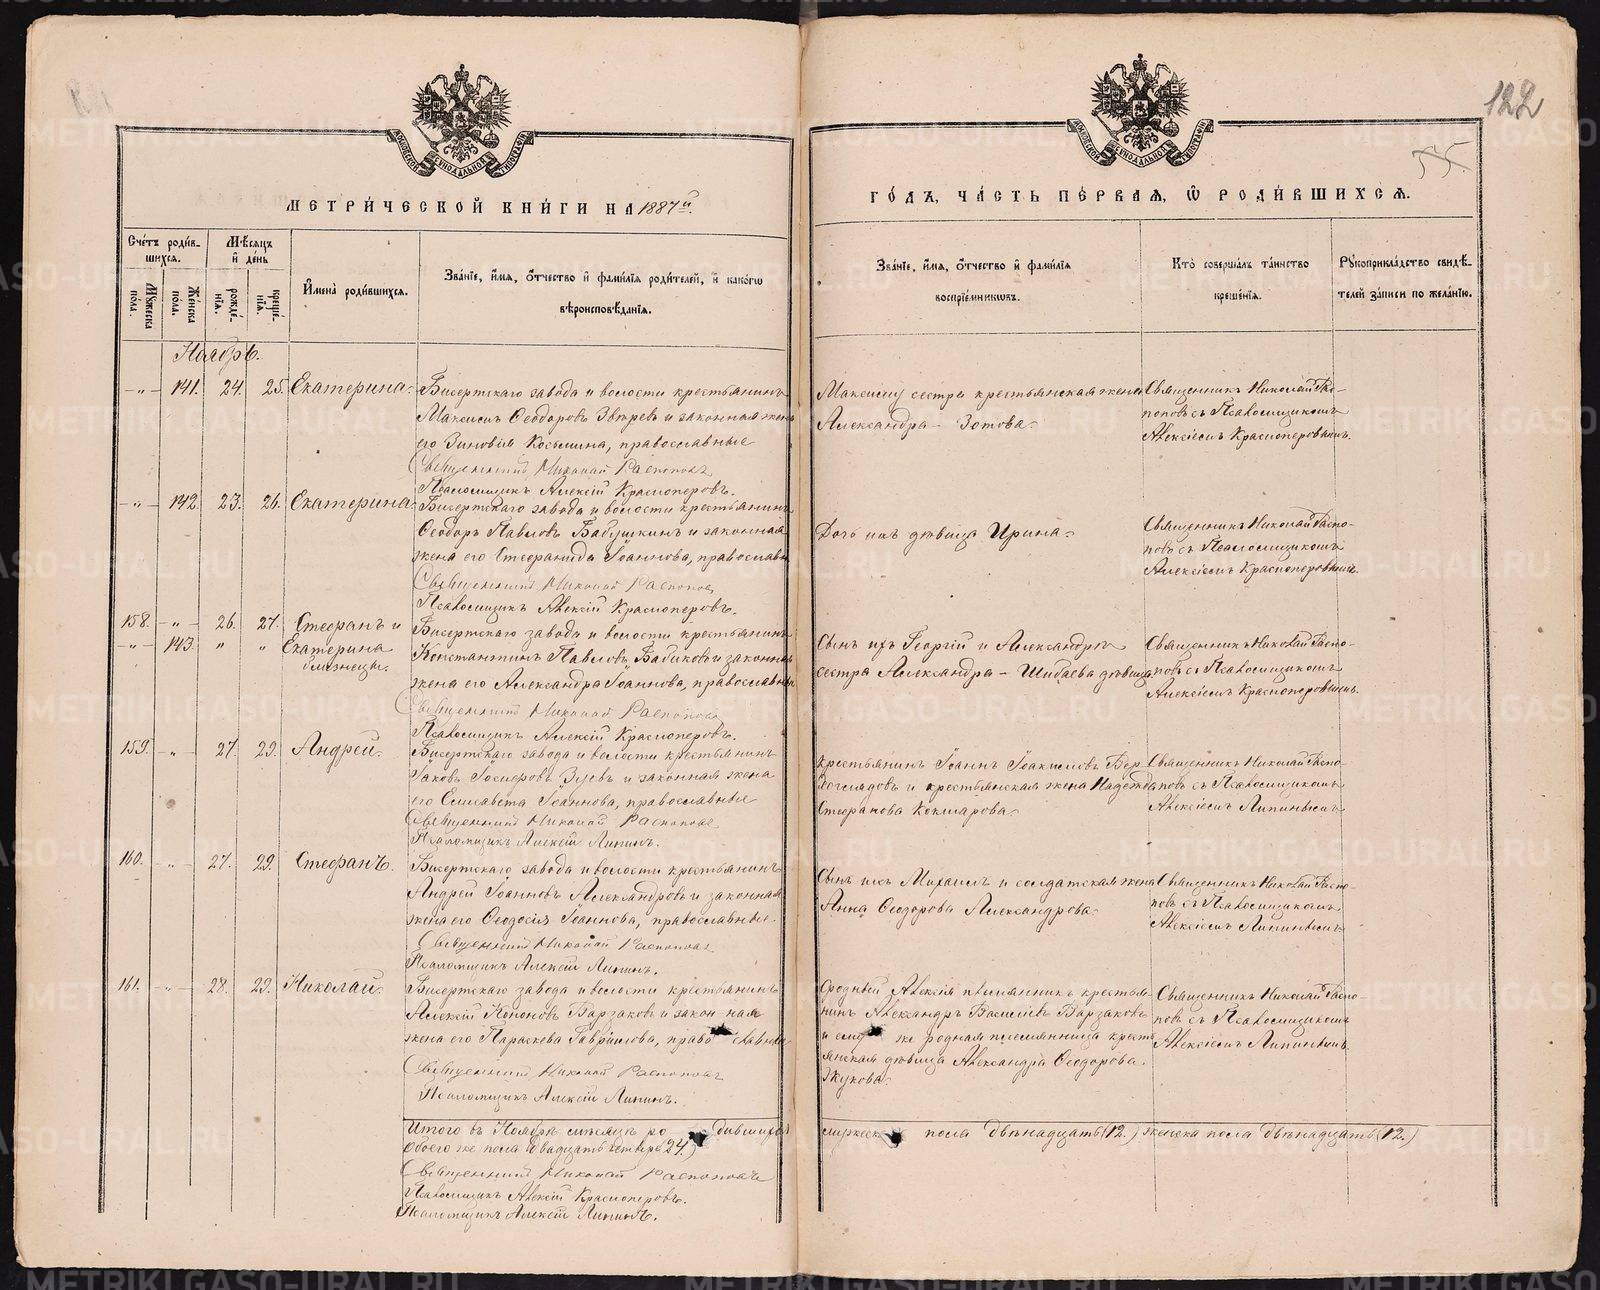 122
55
МОСКОВСКОЙ СѴНОДАЛЬНОЙ ТИПОГРАФІИ
МОСКОВСКОЙ СѴНОДАЛЬНОЙ ТИПОГРАФІИ
МЕТРИ́ЧЕСКОЙ КНИ́ГИ НА 1887й
ГО́ДЪ, ЧА́СТЬ ПЕ́РВАЯ, Ѡ РОДИ́ВШИХСЯ.
Сче́тъ роди́в-
шихся.
Мѣ́сяцъ
и҆ де́нь
Му́жеска
пола.
Же́нска
пола.
рожде́-
нія.
креще́-
нія.
И҆мена̀ роди́вшихся.
Зва́ніе, и҆́мя, ѻ҆́тчество и҆ фами́лія роди́телей, и҆ како́гѡ
вѣроисповѣ́данія.
Зва́ніе, и҆́мя, ѻ҆́тчество и҆ фами́лія
воспріе́мниковъ.
Кто̀ соверша́лъ та́инство
креще́нія.
Рукоприкла́дство свидѣ́-
телей за́писи по жела́нію.
Ноябрь.
- „ - 141. 24. 25. Екатерина.
Бисертскаго завода и волости крестьянинъ
Максимъ Ѳеодоровъ Звѣревъ и законная жена
его Зиновія Косьмина, православные
Священникъ Николай Распоповъ
Псаломщикъ Алексій Красноперовъ.
Максиму сестра крестьянская жена
Александра Зотова.
Священникъ Николай Распо-
поповъ съ Псаломщикомъ
Алексіемъ Красноперовымъ.
- „ - 142. 23. 26. Екатерина
Бисертскаго завода и волости крестьянинъ
Ѳеодоръ Павловъ Бабушкинъ и законная
жена его Стефанида Іоаннова, православн.
Священникъ Николай Распопов
Псаломщикъ Алексій Красноперовъ.
Дочь ихъ дѣвица Ирина.
Священникъ Николай Распо-
повъ съ Псаломщикомъ
Алексіемъ Красноперовымъ.
158. - „ - 26. 27. Стефанъ и
- „ - 143. „ „ Екатерина
близнецы.
Бисертскаго завода и волости крестьянинъ
Константинъ Павловъ Бабиковъ и законная
жена его Александра Іоаннова, православные
Священникъ Николай Распоповъ
Псаломщикъ Алексій Красноперовъ.
Сынъ ихъ Георгій и Александрѣ
сестра Александра - Шибаева дѣвица
Священникъ Николай Распо-
повъ съ Псаломщикомъ
Алексіемъ Красноперовымъ.
159. - „ - 27. 29. Андрей.
Бисертскаго завода и волости крестьянинъ
Іаковъ Зуевъ и законная жена
его Елисавета Іоаннова, православные
Священникъ Николай Распоповъ
Псаломщикъ Алексій Липинъ.
Крестьянинъ Іоаннъ Іоакимовъ Вер-
хоглядовъ и крестьянская жена Надежда
Стефанова Кокшарова.
Священникъ Николай Распо-
повъ съ Псаломщикомъ
Алексіемъ Липинымъ
160. - „ - 27. 29. Стефанъ.
Бисертскаго завода и волости крестьянинъ
Андрей Іоанновъ Александровъ и законная
жена его Ѳеодосія Іоаннова, православные.
Священникъ Николай Распоповъ
Псаломщикъ Алексій Липинъ.
Сынъ ихъ Михаилъ и солдатская жена
Анна Ѳеодорова Александрова.
Священникъ Николай Распо-
повъ съ Псаломщикомъ
Алексіемъ Липинымъ
161. - „ - 28. 29. Николай.
Бисертскаго завода и волости крестьянинъ
Алексій Кононовъ Барзаковъ и закон-ная
жена его Параскева Гавріилова, право славные
Священникъ Николай Распоповъ
Псаломщикъ Алексій Липинъ.
Сродный Алексія племянникъ крестья-
нинъ Александръ Василіевъ Барзаковъ
и ему же родная племянница кресть-
янская дѣвица Александра Ѳеодорова
Жукова.
Священникъ Николай Распо-
повъ съ Псаломщикомъ
Алексіемъ Липинымъ
Итого въ Ноябрѣ мѣсяцѣ ро дившихся
мужеск пола двѣнадцать (12.) женска пола двѣнадцать (12.)
Обоего же пола двадцать четыре 24.)
Священникъ Николай Распоповъ
Псаломщикъ Алексій Красноперовъ.
Псаломщикъ Алексій Липинъ.
METRIKI.GASO-URAL.RU